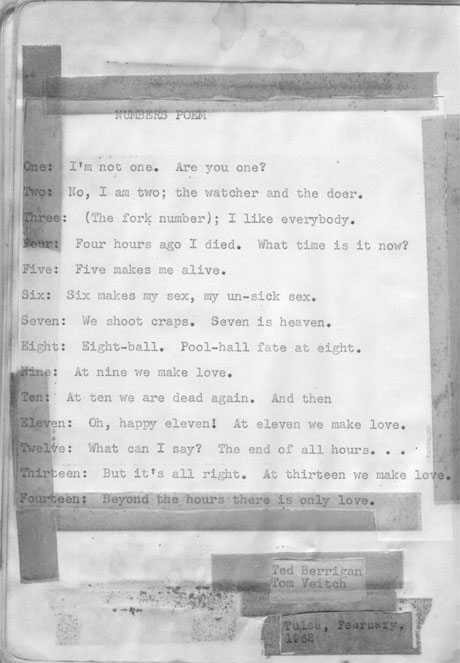 NUMBERS POEM
One: I'm not one. Are you one?
Two: No, I am two; the watcher and the doer.
Three: (The fork number); I like everybody.
Four: Four hours ago I died. What time is it now?
Five: Five makes me alive.
Six: Six makes my sex, my un-sick sex.
Seven: We shoot craps. Seven is heaven.
Eight: Eight-ball. Pool-hall fate at eight.
Nine: At nine we make love.
Ten: At ten we are dead again. And then
Eleven: Oh, happy eleven! At eleven we make love.
Twelve: What can I say? The end of all hours. . .
Thirteen: But it's all right. At thirteen we make love.
Fourteen: Beyond the hours there is only love.
Ted Berrigan
Tom Veitch
Tulsa, February,
1962